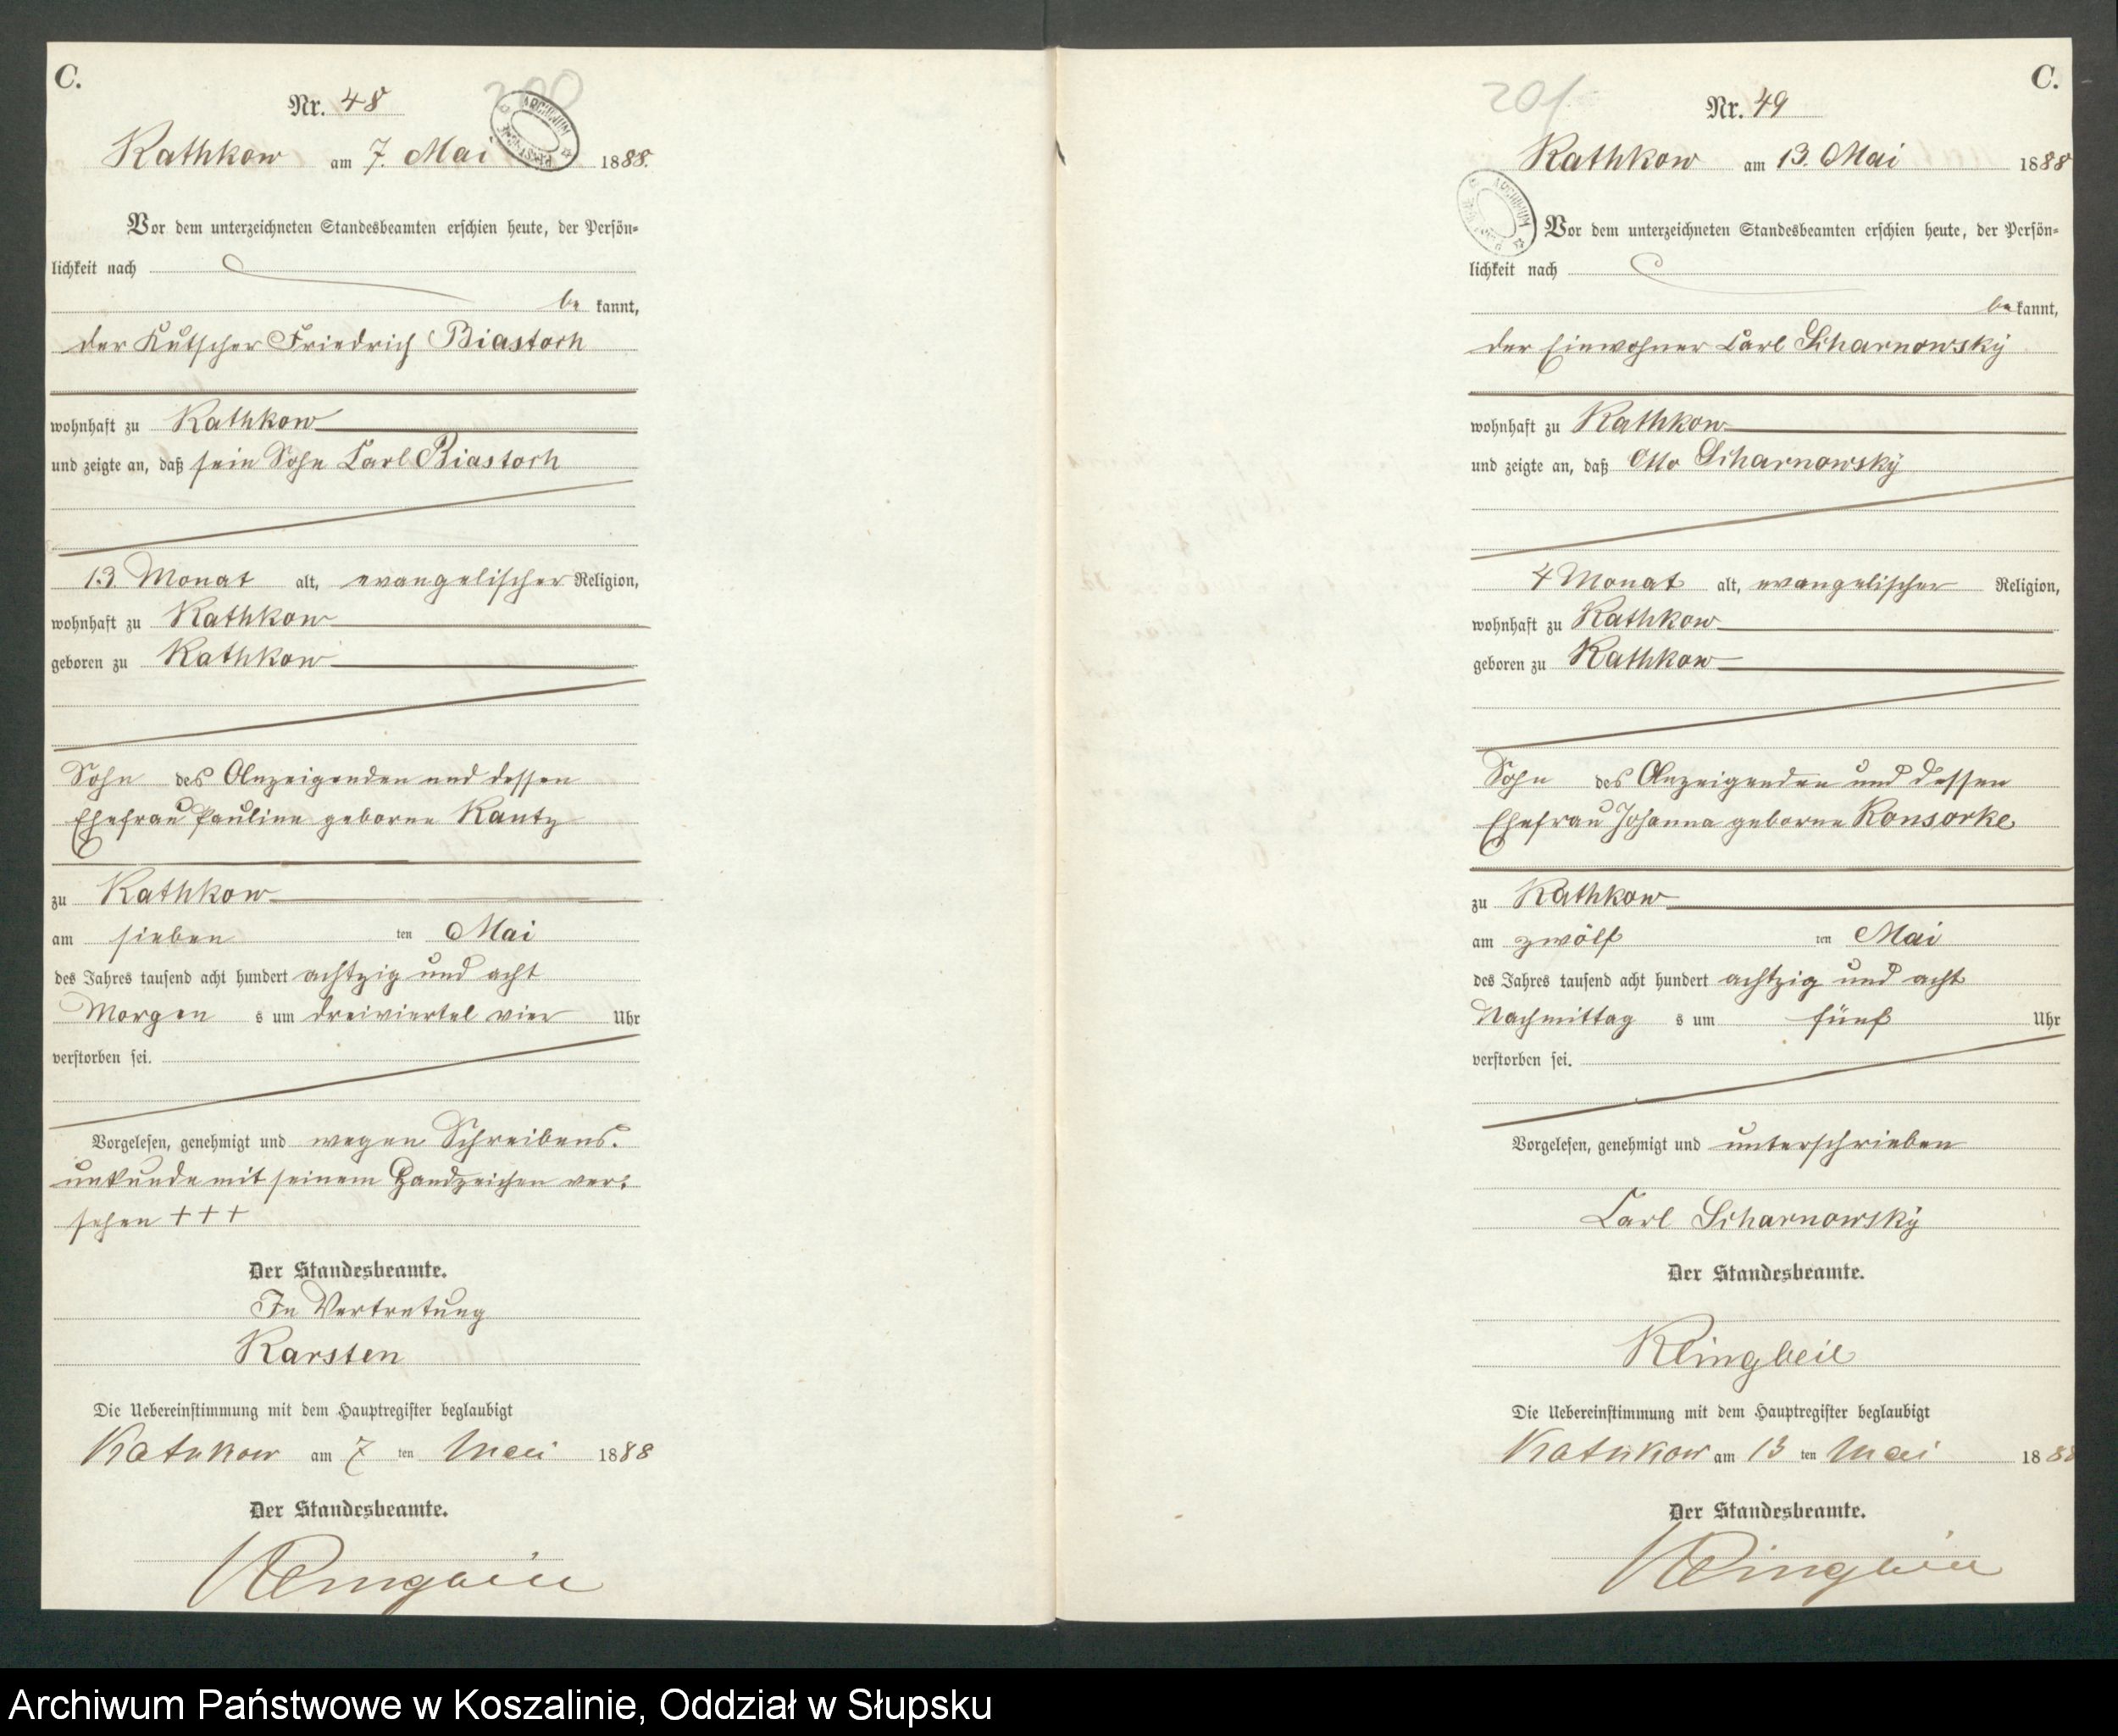 C.
200
Nr. 48
Kathkow am 7. Mai 1888.
Vor dem unterzeichneten Standesbeamten erschien heute, der Persön-
lichkeit nach
be kannt,
der Kutscher Friedrich Biastoch
wohnhaft zu Kathkow
und zeigte an, daß sein Sohn Carl Biastoch
13 Monat alt, evangelischer Religion,
wohnhaft zu Kathkow
geboren zu Kathkow
Sohn des Anzeigenden und dessen
Ehefrau Pauline geborne Kautz
zu Kathkow
am sieben ten Mai
des Jahres tausend acht hundert achtzig und acht
Morgen s um dreiviertel vier Uhr
verstorben sei.
Vorgelesen, genehmigt und wegen Schreibens-
unkunde mit seinem Handzeichen ver-
sehen +++
Der Standesbeamte.
In Vertretung
Karsten
Die Uebereinstimmung mit dem Hauptregister beglaubigt
Kathkow am 7 ten Mai 1888
Der Standesbeamte.
Klingbeil
C.
201
Nr. 49
Kathkow am 13. Mai 1888
ARCHIWUM
Vor dem unterzeichneten Standesbeamten erschien heute, der Persön-
lichkeit nach
be kannt,
der Einwohner Carl Scharnowsky
wohnhaft zu Kathkow
und zeigte an, daß Otto Scharnowsky
4 Monat alt, evangelischer Religion,
wohnhaft zu Kathkow
geboren zu Kathkow
Sohn des Anzeigenden und dessen
Ehefrau Johanna geborne Konsorke
zu Kathkow
am zwölf ten Mai
des Jahres tausend acht hundert achtzig und acht
Nachmittag s um fünf Uhr
verstorben sei.
Vorgelesen, genehmigt und unterschrieben
Carl Scharnowsky
Der Standesbeamte.
Klingbeil
Die Uebereinstimmung mit dem Hauptregister beglaubigt
Kathkow am 13 ten Mai 1888
Der Standesbeamte.
Klingbeil
Archiwum Państwowe w Koszalinie, Oddział w Słupsku